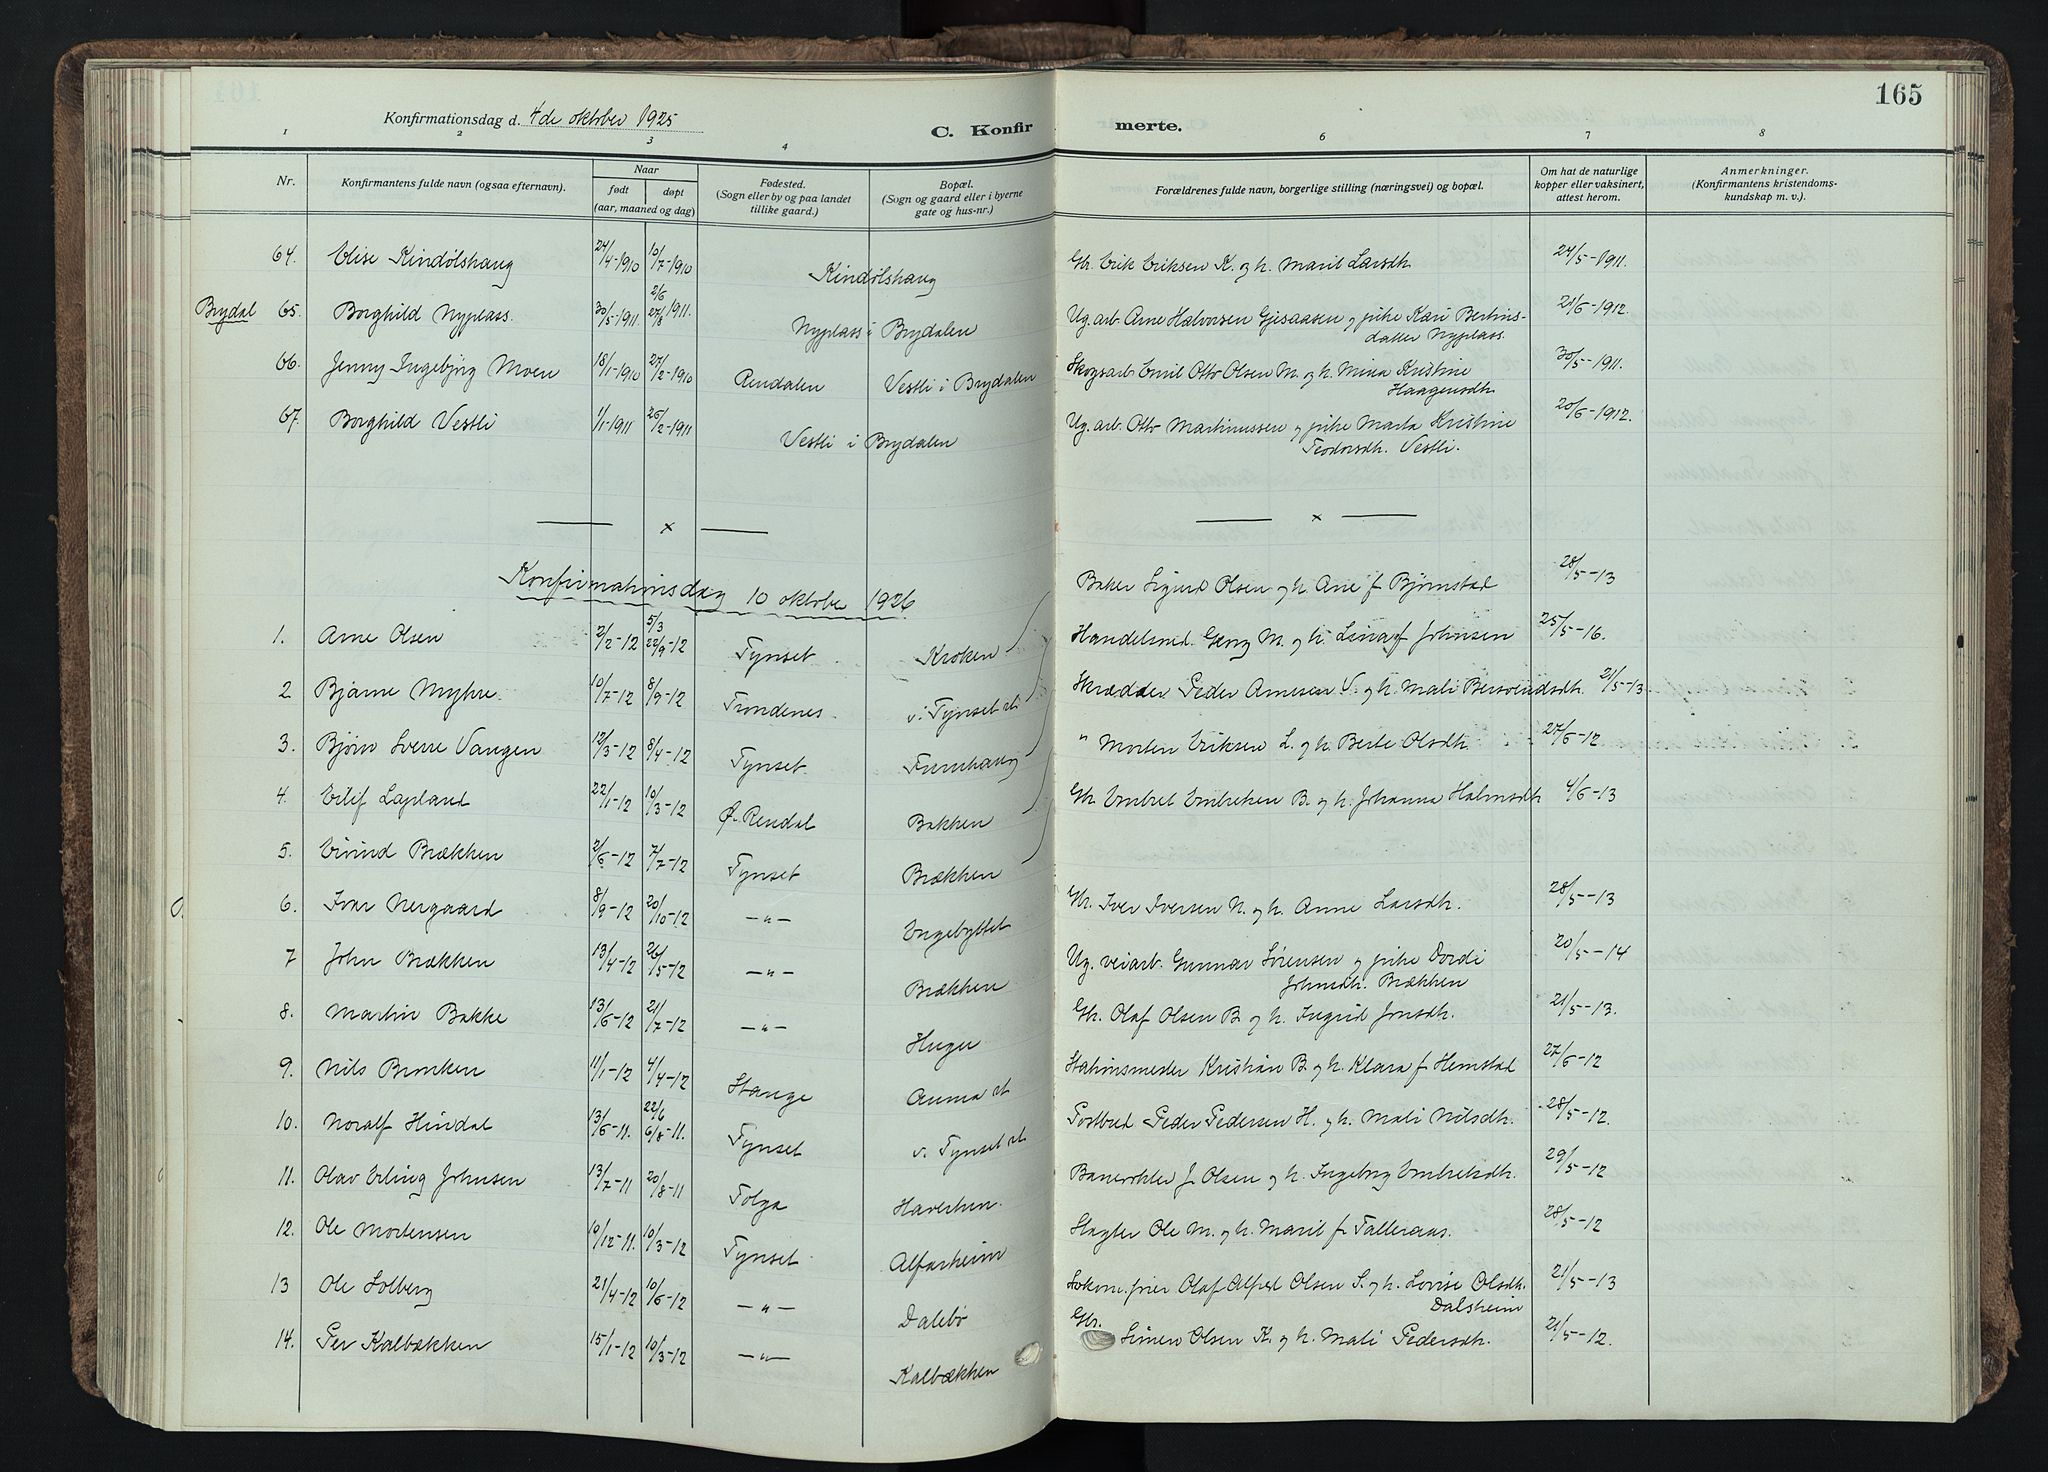 165
Konfirmationsdag d. 4de oktober 1925
C. Konfirmerte.
1 2 3 4 6 7 8
Nr. Konfirmantens fulde navn (ogsaa efternavn). Naar født døpt (aar, maaned og dag) Fødested. (Sogn eller by og paa landet tillike gaard.) Bopæl. (Sogn og gaard eller i byerne gate og hus-nr.) Forældrenes fulde navn, borgerlige stilling (næringsvei) og bopæl. Om hat de naturlige kopper eller vaksinert, attest herom. Anmerkninger. (Konfirmantens kristendomskundskap m. v.).
64. Elise Kindølshaug 24/4-1910 10/7-1910 Kindølshaug Gbr. Erik Eriksen K. og h. Marit Larsdtr. 24/5-1911.
Brydal 65. Borghild Nyplass. 30/5-1911 2/6 27/8 1911. Nyplass i Brydalen Ug. arb. Arne Halvorsen Gjesaasen og pike Kari Bertins-
datter Nyplass. 21/6-1912.
66. Jenny Ingebjørg Moen 18/1-1910 27/2-1910 Rendalen Vestli i Brydalen Skogsarb. Emil Otto Olsen M. og h. Mina Kristine
Haagensdtr. 30/5-1911.
67. Borghild Vestli 1/1-1911 26/2-1911 Vestli i Brydalen Ug. arb. Otto Martinussen og pike Marta Kristine
Teodorsdtr. Vestli. 20/6-1912.
Konfirmationsdag 10 oktober 1926
1. Arne Olsen 2/2-12 5/3 22/9-12 Tynset Kroken Baker Sigurd Olsen og h. Ane f. Bjørnstad 28/5-13
2 Bjarne Myhre. 10/7-12 8/9-12 Trondenes v. Tynset st. Handelsmd. Georg M. og h. Lina f. Johnsen 25/5-16.
3. Bjørn Sverre Vangen 12/3-12 8/4-12 Tynset Furuhaug Skrædder Peder Arnesen V. og h. Mali Bersvendsdtr. 21/5-13
4. Eilif Lapland 22/1-12 10/3-12 Ø. Rendal Bakken " Morten Eriksen L. og h. Berte Olsdtr. 27/6-12
5. Eivind Brækken 2/6-12 7/7-12 Tynset Brækken Gbr. Embret Embretsen B. og h. Johanna Halvorsdtr. 4/6-13
6. Ivar Nergaard 8/9-12 20/10-12 —"— Engebyttet Gbr. Iver Iversen N. og h. Anne Larsdtr. 28/5-13
7 John Brækken 13/4-12 26/5-12 —"— Brækken Ug. veiarb. Gunnar Sørensen og pike Dordi
Johnsdtr. Brækken 20/5-14
8. Martin Bakke 13/6-12 21/7-12 —"— Gbr. Olaf Olsen B. og h. Ingrid Jonsdtr. 21/5-13.
9. Nils Bronken 11/1-12 4/4-12 Stange Auma st Stationsmester Kristian B. og h. Klara f. Hemstad 27/6-12
10. Noralf Hindal 13/6-11. 22/6 6/8-11. Tynset v. Tynset st Postbud Peder Pedersen H. og h. Mali Nilsdtr. 28/5-12.
11. Olav Erling Johnsen 13/7-11 20/8-11 Tolga Banevokter J. Olsen og h. Ingeborg Embretsdtr. 29/5-12
12. Ole Mortensen 10/12-11. 10/3-12 Tynset Alfarheim Slagter Ole M. og h. Marit f. Talleraas. 28/5-12
13 Ole Solberg 21/4-12 10/6-12 —"— Dalebø Lokom. fører Olaf Alfred Olsen S. og h. Lovise Olsdtr.
Dalsheim 21/5-13
14. Per Kalbækken 15/1-12 10/3-12 —"— Kalbækken Gbr. Simen Olsen K. og h. Mali Pedersdtr. 21/5-12.